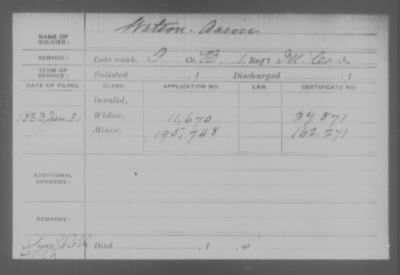 NAME OF SOLDIER: Watson, Aaron
SERVICE: Late rank, P Co. B, 1, Reg't Ill. Cav
TERM OF SERVICE: Enlisted , 1 Discharged , 1
DATE OF FILING. CLASS. APPLICATION NO. LAW. CERTIFICATE NO.
Invalid,
1863 Jan. 21 Widow, 11,670 39.871
Minor, 195,748 162.271
ADDITIONAL SERVICES:
REMARKS:
Died , 1 , at